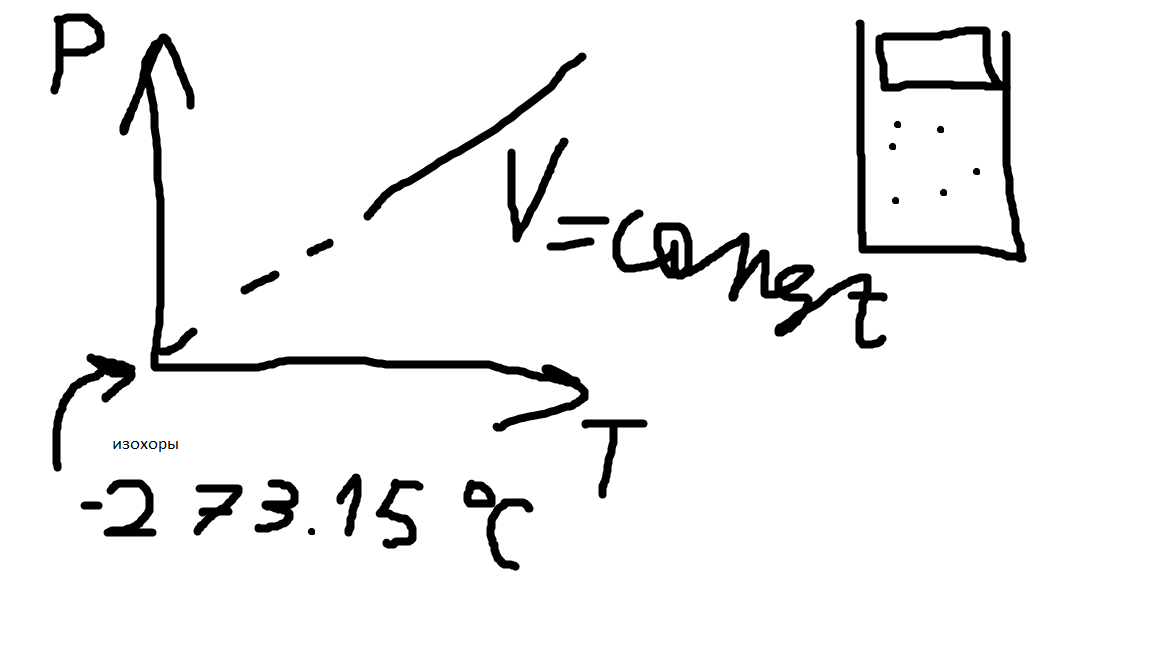 P
V=const
T
изохоры
-273.15 °C